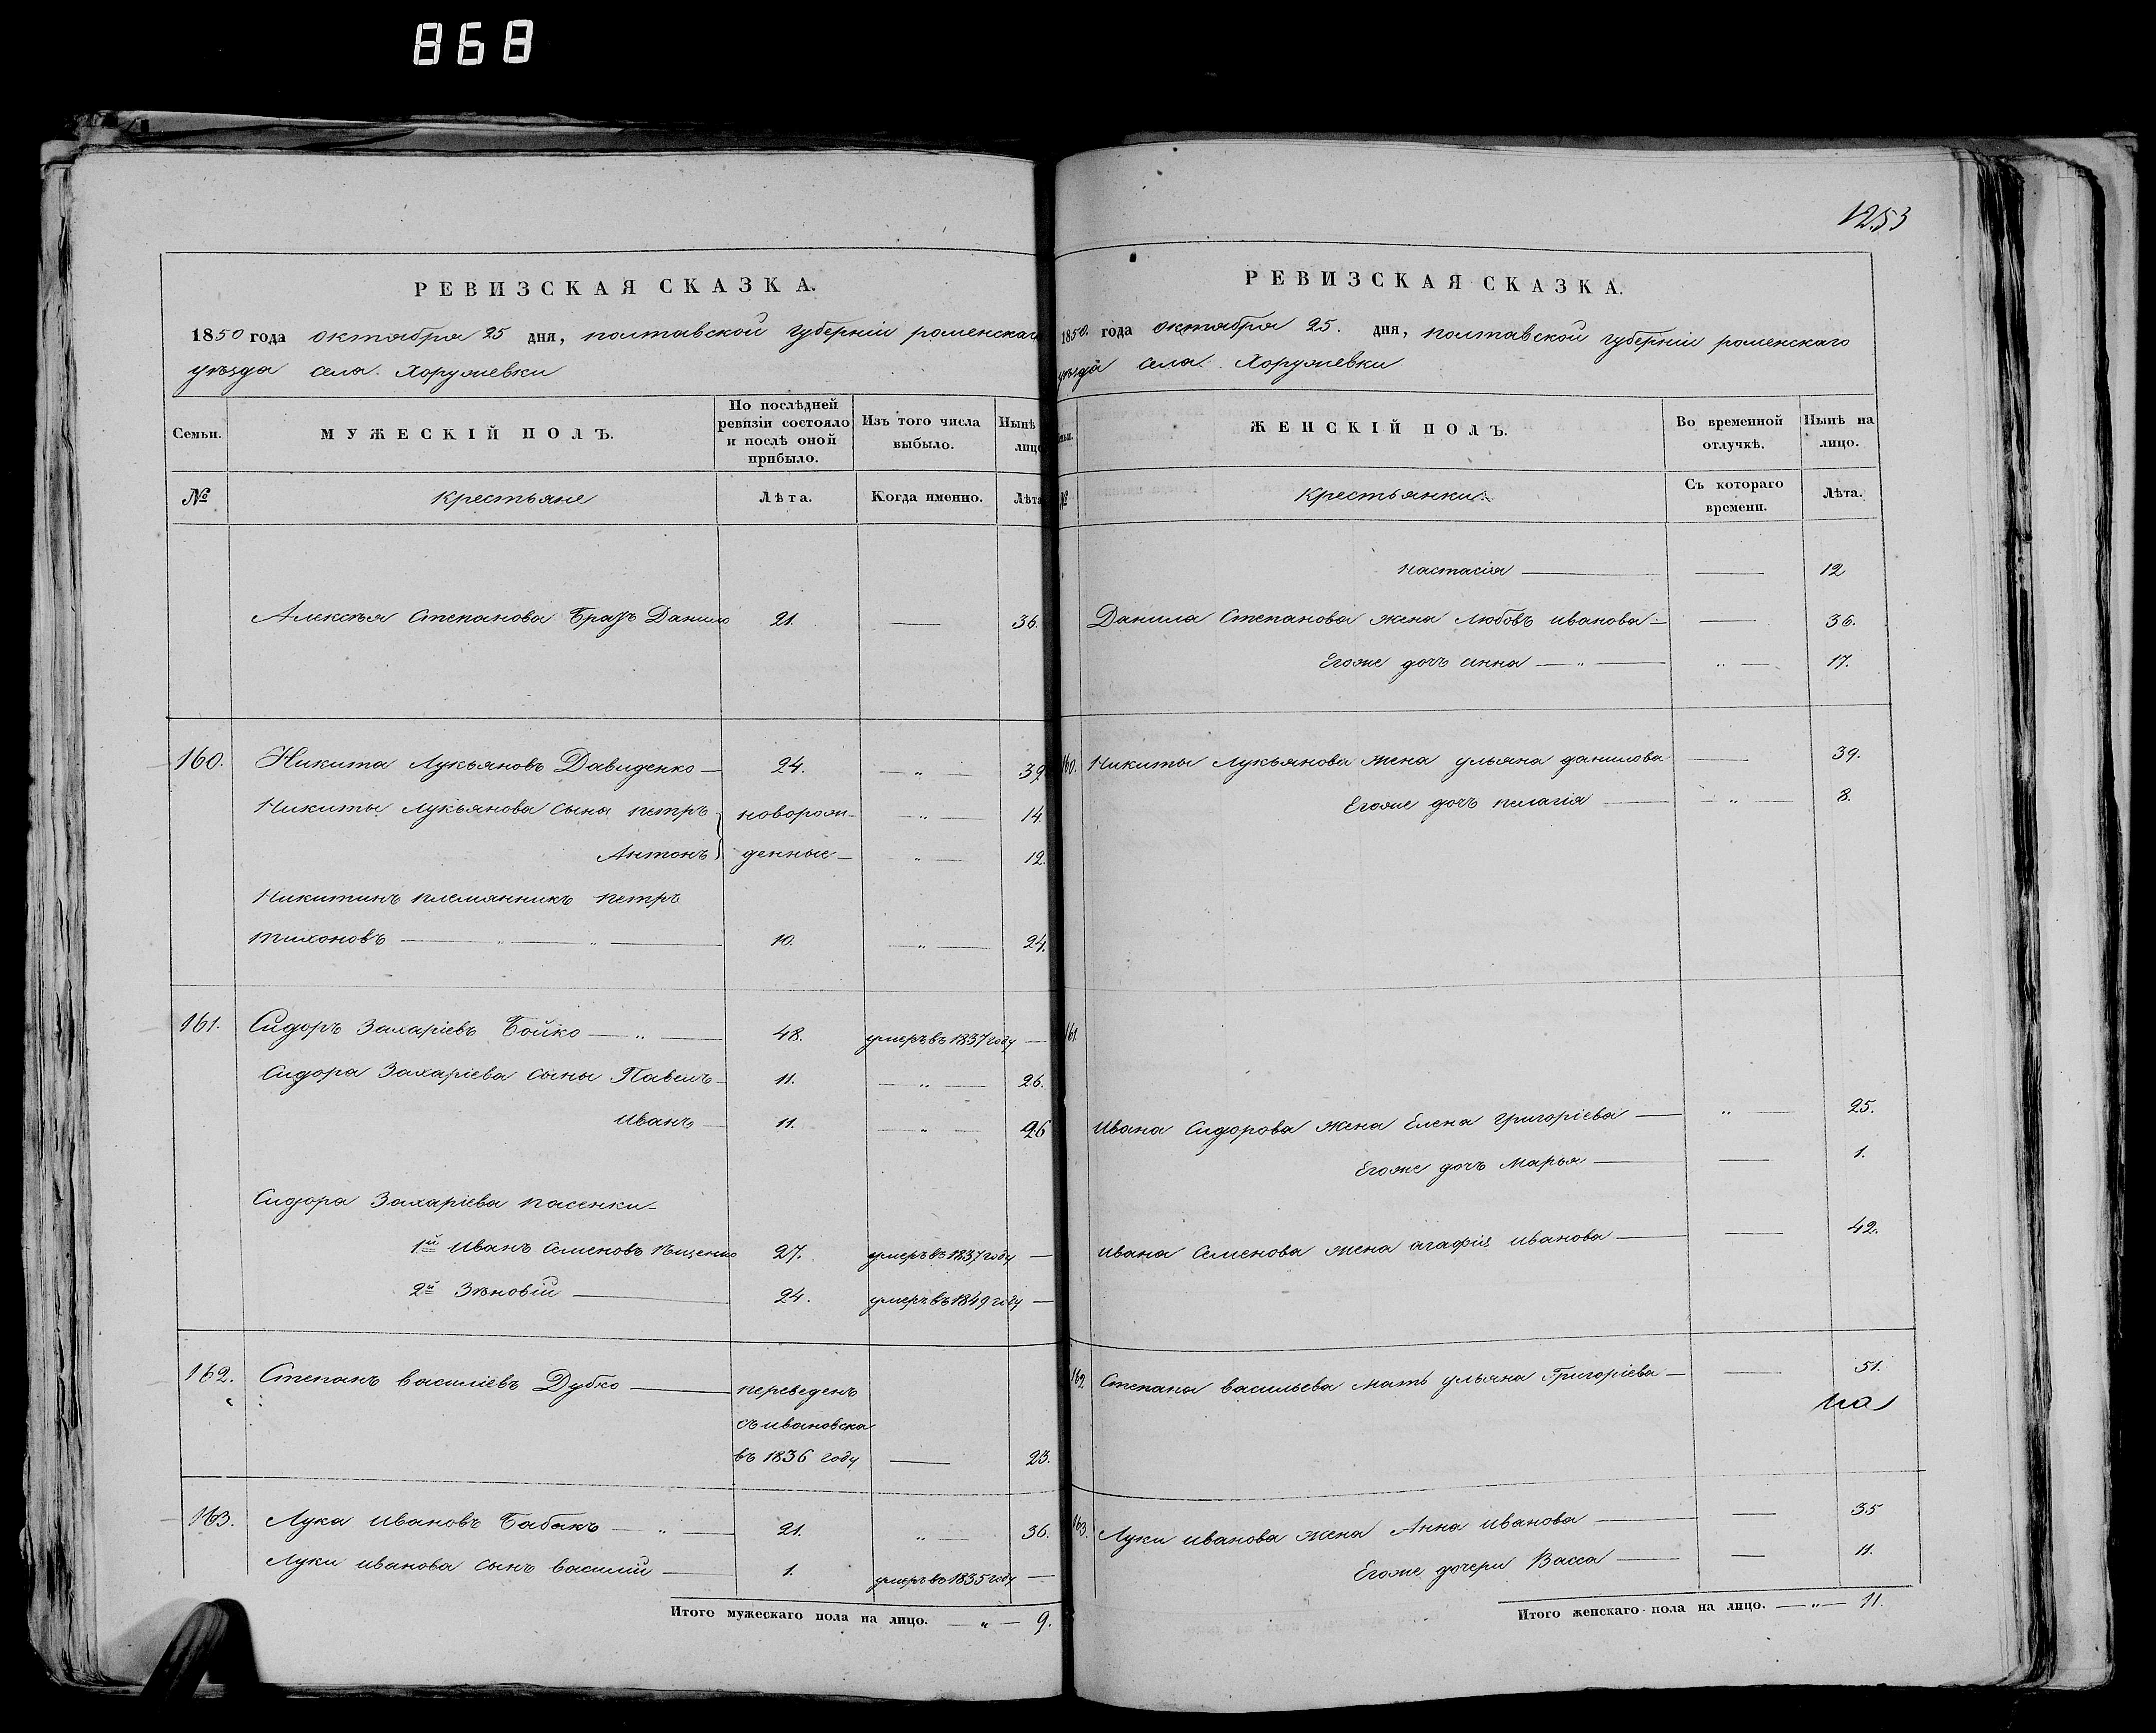 868
РЕВИЗСКАЯ СКАЗКА.
1850 года октября 25 дня, полтавской губерніи роменскаго
уѣзда села Хоружевки
Семьи.
МУЖЕСКІЙ ПОЛЪ.
По послѣдней
ревизіи состояло
и послѣ оной
прибыло.
Изъ того числа
выбыло.
Нынѣ
лицо
№
Крестьяне
Лѣта.
Когда именно.
Лѣта
Алексѣя Степанова Братъ Данило 21. — 36.
160. Никита Лукьяновъ Давиденко — 24. — „ — 39
Никиты Лукьянова сыны петръ новорож- — „ — 14.
Антонъ денные — „ — 12.
Никитинъ племянникъ петръ
тихоновъ — „ — „ — 10. — „ — 24.
161. Сидоръ Захаріевъ Бойко — „ — 48. умеръ въ 1837 году —
Сидора Захаріева сыны Павелъ — 11. — „ — 26.
иванъ — 11. — „ — 26
Сидора Захаріева пасенки —
1й иванъ Семеновъ 27. умеръ въ 1837 году —
2й Зѣновій — 24. умеръ въ 1849 году —
162. Степанъ василіевъ Дубко — переведенъ
съ ивановска
въ 1836 году — 23.
163. Лука ивановъ Бабакъ — „ — 21. „ — 36.
Луки иванова сынъ василій — 1. умеръ въ 1835 году —
Итого мужескаго пола на лицо. — „ — 9.
1253
РЕВИЗСКАЯ СКАЗКА.
1850. года октября 25. дня, полтавской губерніи роменскаго
уѣзда села Хоружевки
емьи.
ЖЕНСКІЙ ПОЛЪ.
Во временной
отлучкѣ.
Нынѣ на
лицо.
№
Крестьянки
Съ котораго
времени.
Лѣта.
настасія — — 12
Данила Степанова жена любовъ иванова — — 36.
Егоже дочъ анна — „ — „ — 17.
160. Никиты Лукьянова жена ульяна данилова — 39.
Егоже дочъ пелагія — — „ — 8.
161.
ивана Сидорова жена Елена григоріева — „ — 25.
Егоже дочъ Марья — — 1.
ивана Семенова жена агафія иванова — — 42.
162. Степана васильева мать ульяна Григоріева — — 51.
163. Луки иванова жена Анна иванова — — 35
Егоже дочери Васса — — 11.
Итого женскаго пола на лицо. — „ — 11.